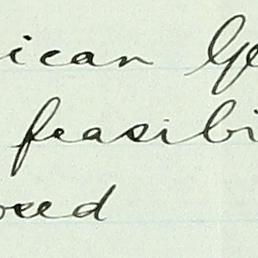 ican Ge
feasibi
osed